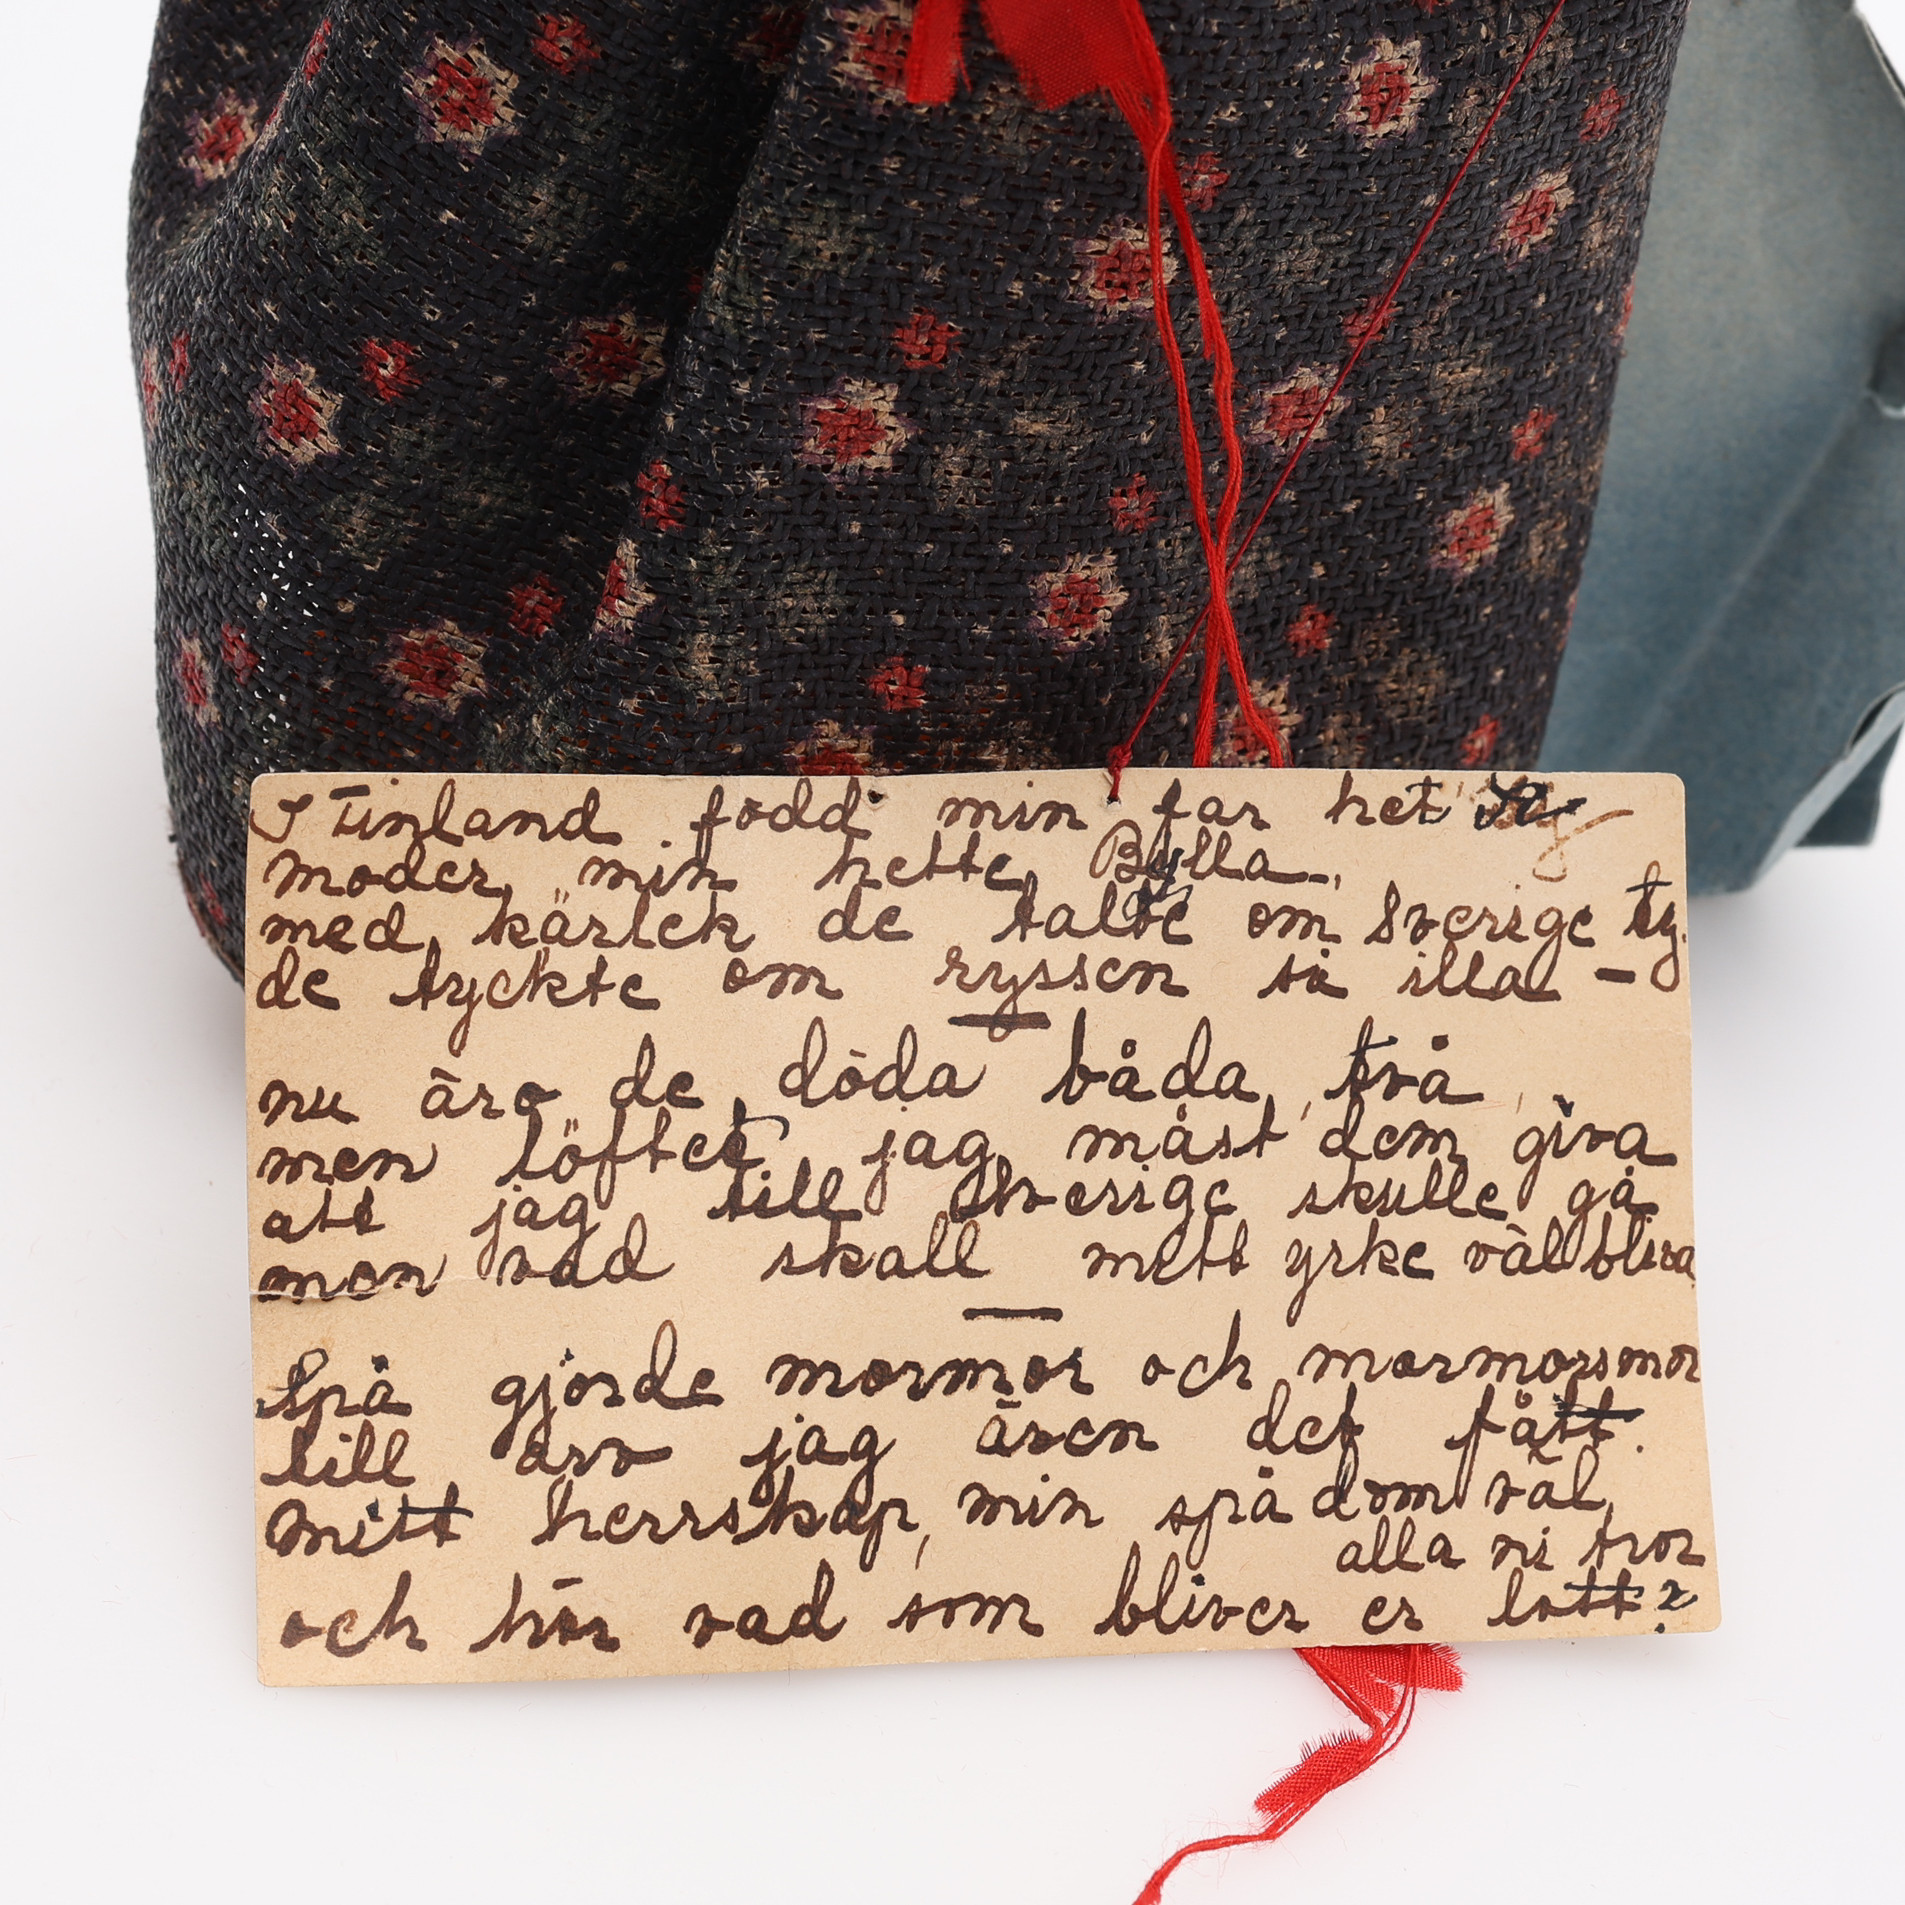 I Finland född min far het
moder min hette Bylla
med kärlek de talte om Sverige ty
de tyckte om ryssen så illa —
nu äro de döda båda två
men löftet jag måst dem giva
att jag till Sverige skulle gå
men vad skall mitt yrke väl bliva
Spå gjorde mormor och mormorsmor
till arv jag även det fått.
Mitt herrskap, min spådom väl,
alla ni tror
och hör vad som bliver er lott?